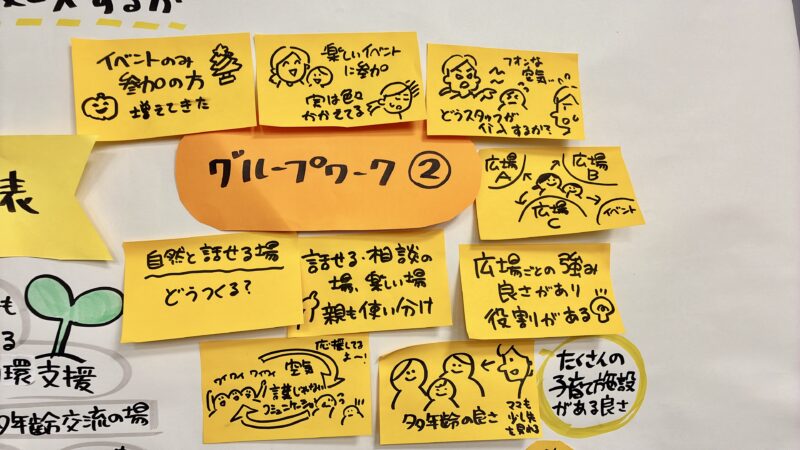 イベントのみ
参加の方
増えてきた
楽しいイベント
に参加
実は色々
かかえてる
フオンな
空気…
どうスタッフが
介入するか?
グループワーク②
広場
A
広場
B
広場
C
イベント
表
自然と話せる場
どうつくる?
話せる・相談の
場、楽しい場
親も使い分け
広場ごとの強み
良さがあり
役割がある
応援してる
よ〜!
ワイワイ ワイワイ
空気
言葉じゃない
コミュニケーション
多年齢の良さ
ママも
少し先
を見れる
たくさんの
子育て施設
がある良さ
も
る
環支援
多年齢交流の場